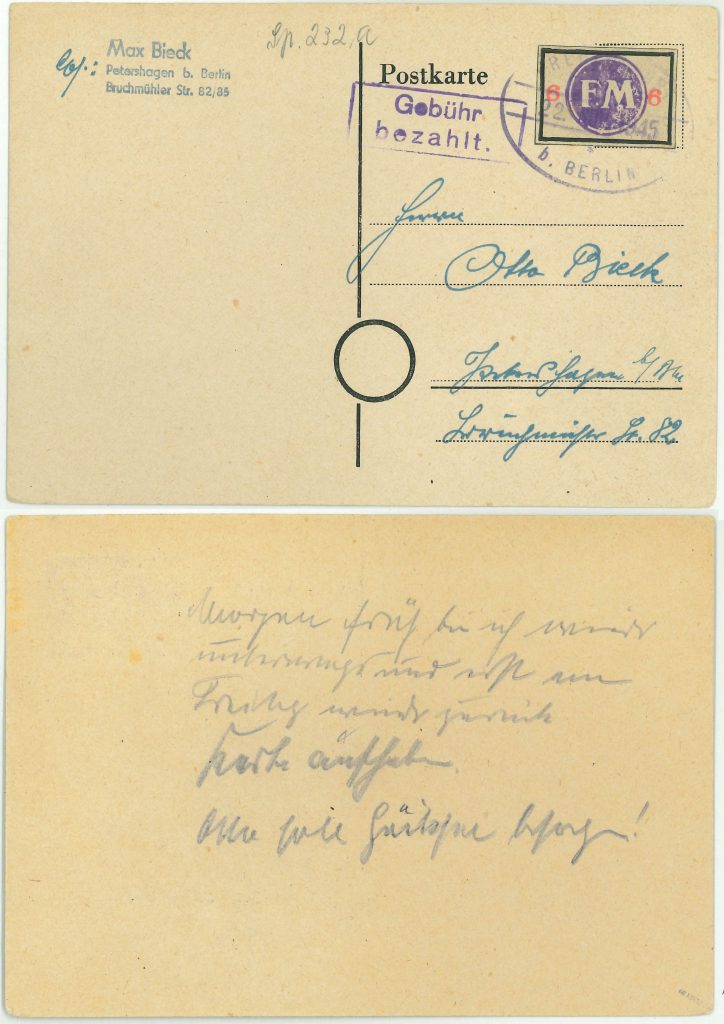 Sp. 232, a
Abs.:
Max Bieck
Petershagen b. Berlin
Bruchmühler Str. 82/85
Postkarte
Gebühr
bezahlt.
6 FM 6
22 1945
b. BERLIN
Herrn
Otto Bieck
Petershagen b/Bln
Bruchmühler Str. 82
Morgen früh bin ich wieder
unterwegs und erst am
Freitag wieder zurück
Karte aufheben.
Otto soll Häcksel besorgen!